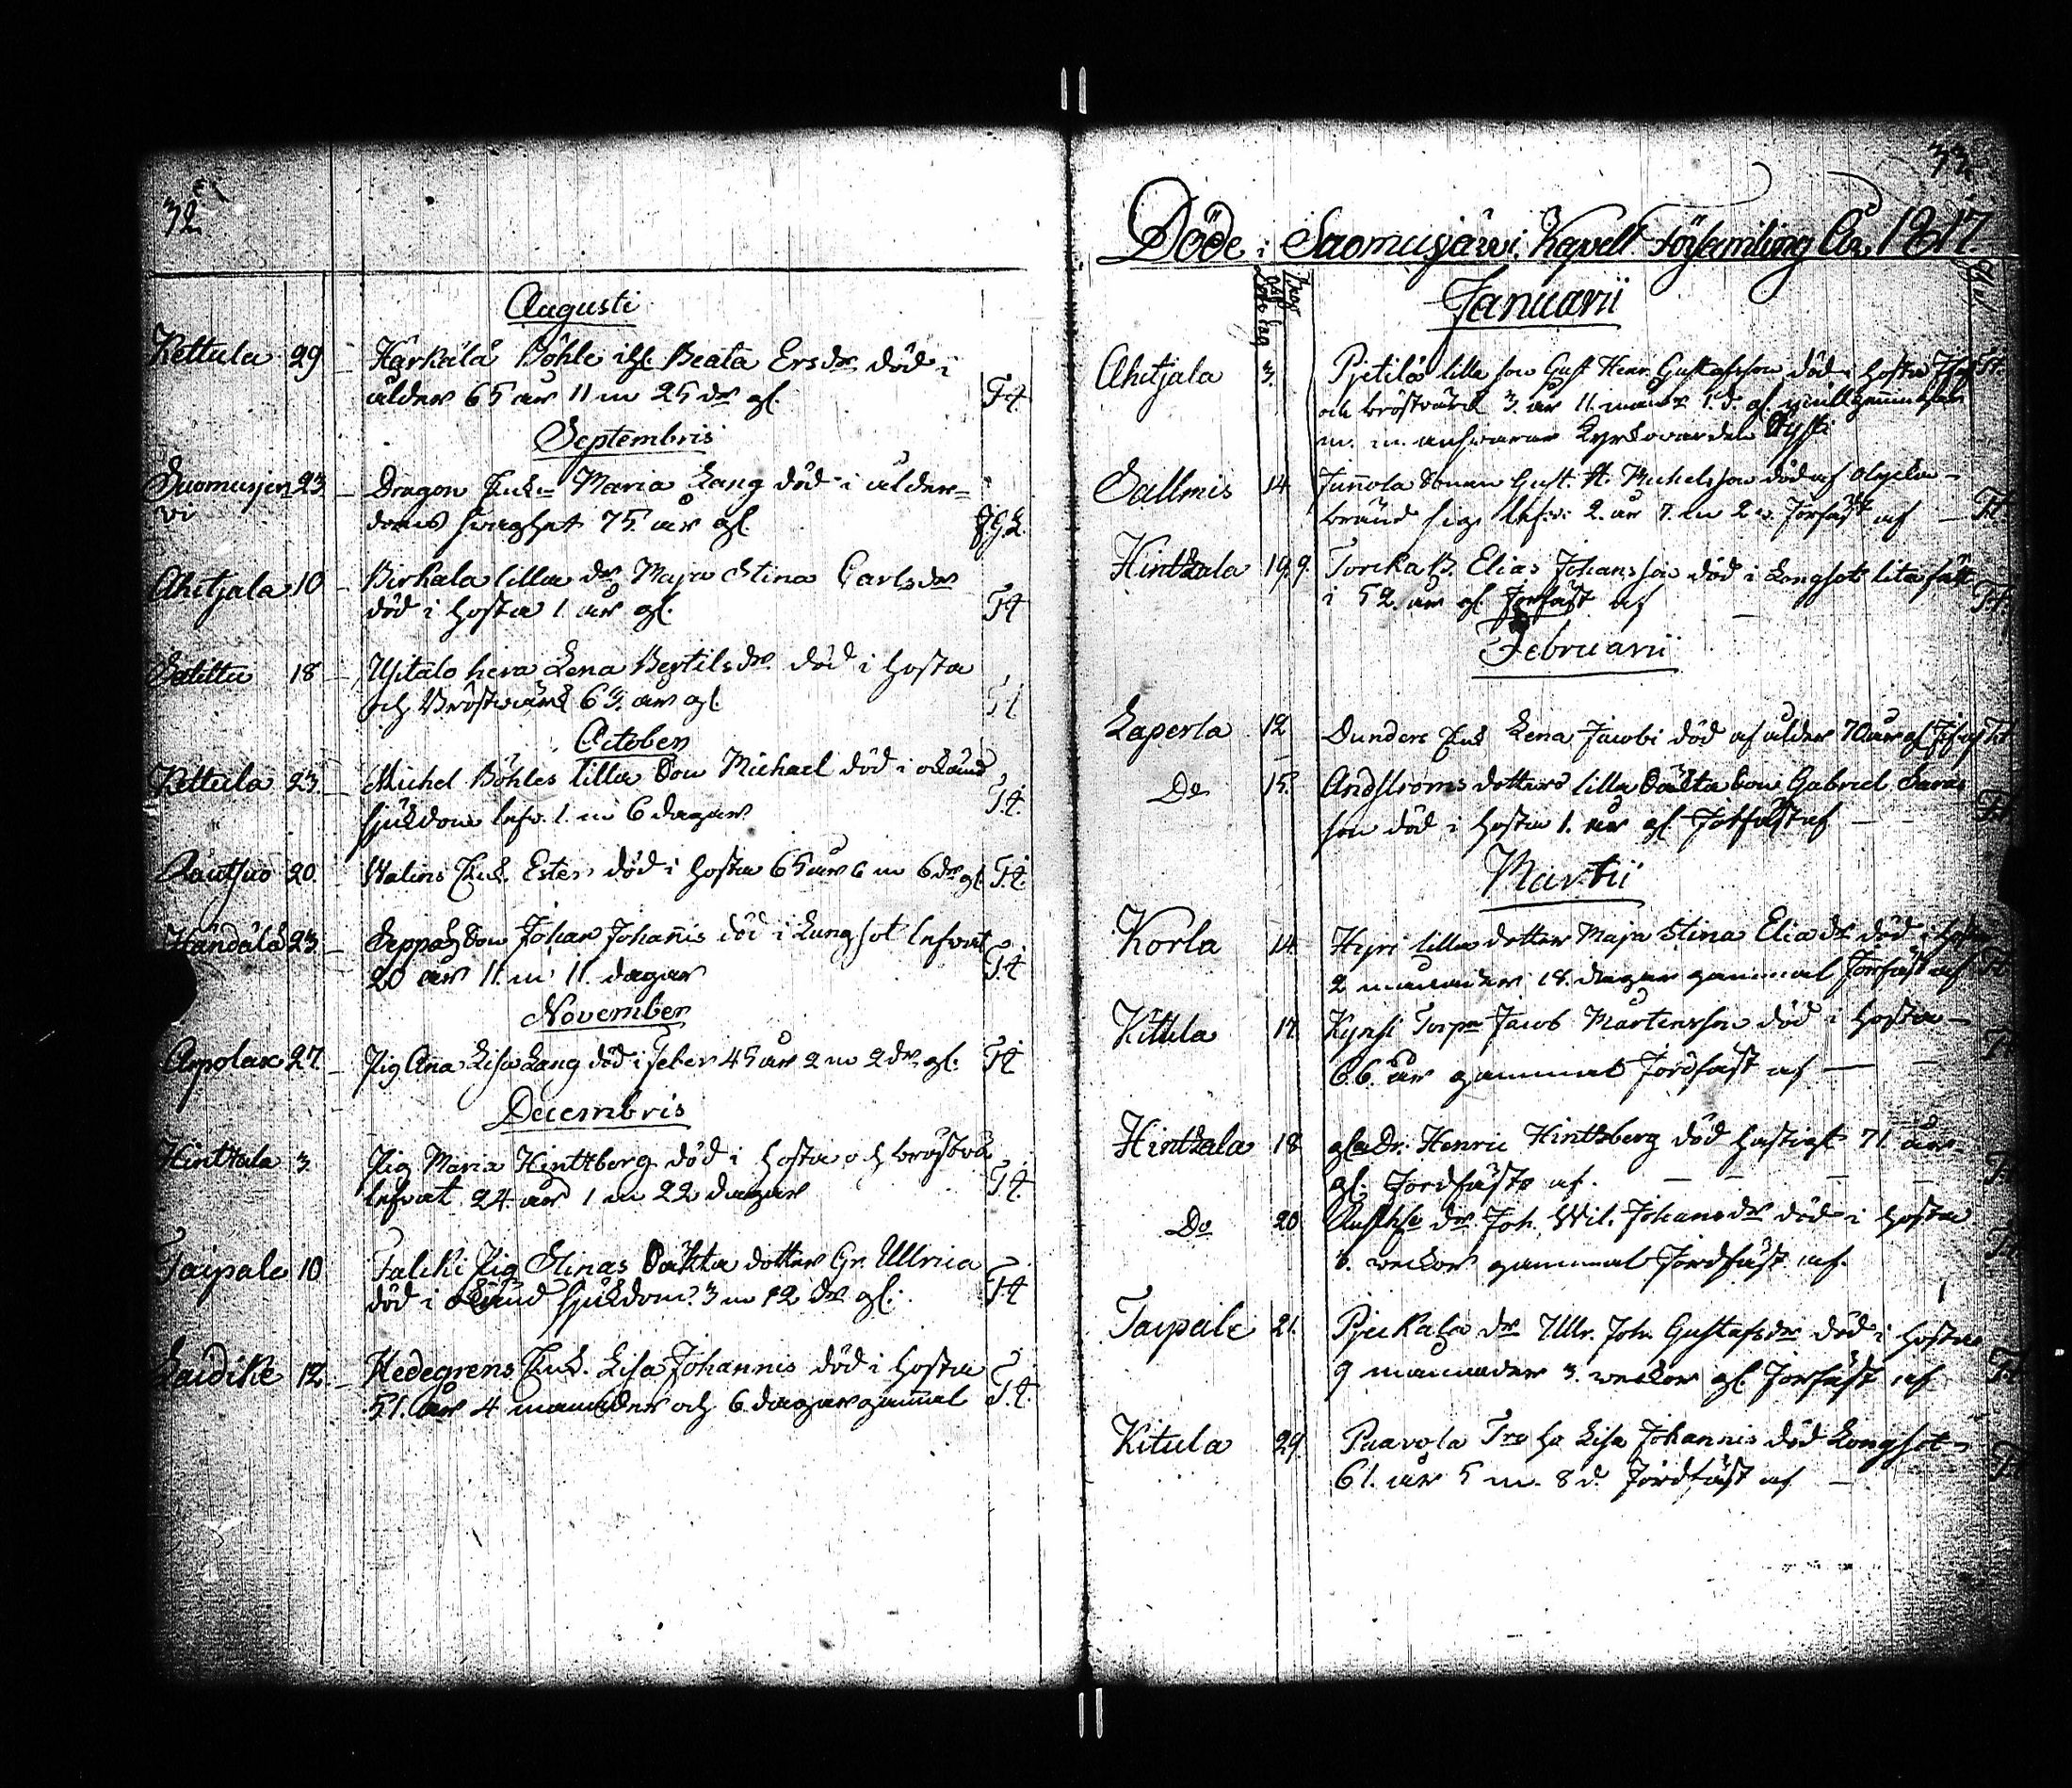 32
Augusti
Kettula 29 Härkälä Böhle ihl. Beata Ersdr död i
ålder 65 år 11 m 25 dr gl. T.t.
Septembris
Suomusjer 23 Dragon Enk. Maria Lang död i ålder=
vi doms svaghet 75 år gl.
Ahitjala 10 Birkala lilla dr Maja Stina Carlsdr
död i hosta 1 år gl. T.t
Salittu 18 Uhitalo hera Lena Bertilsdr död i hosta
och Bröstwärk 69. år gl. T.t
October
Kettula 23 Michel Böhles lilla Son Michael död i okänd
sjukdom lefv. 1 m 6 dagar T.t.
20. Walins Enk. Ester död i hosta 65 år 6 m 6 dr gl. T.t.
23 Seppäh Son Johan Johannis död i Lungsot lefvat
20 år 11. m 11. dagar T.t
November
Arpolax 27 Pig Ana Lisa Lang död i feber 45 år 2 m 2 dr gl. T.t
Decembris
Hinttala 3 Pig Maria Hinttberg död i hosta och bröstvä
lefvat 24 år 1 m 22 dagar T.t.
Taipale 10 Falcki Pig Stinas Oäkta dotter Gr. Ullrica
död i okänd sjukdom 3 m 12 dr gl. T.t
Laidike 12 Hedegrens Enk. Lisa Johannis död i hosta
51. år 4 månader och 6 dagar gammal T.t.
33
Döde i Suomusjärvi Kapell Församling År 1817
Januarii
Ahitjala 3. Pjetilä lilla son Gust Henr. Gustafsson död i hosta
och bröstvärk 3. år 11. månr 1. d. gl.
m. m. answarar Kyrkovärden
Sallmis 14 Junnola Sonen Gust. A. Michelsson död af olycks-
bränd sig lefv. 2. år 7. m 2 v. Jorfäst af T.t.
Hintzala 19. 9. Torcka B. Elias Johansson död i Longsot
i 52. år gl. Jorfäst af T.t.
Februarii
Laperla 12 Dunders Enk Lena Jacobi död af ålder 70 år gl.
Do 15. Andströms dotters lilla Oäkta Son Gabriel
son död i hosta 1. år gl. Jorfäst af T.t
Martii
Korla 14. Hyri lilla dotter Maja Stina Elia dr död i hosta
2 månader 18. dagar gammal Jorfäst af T.t
Kittula 17. Torpr Jacob Martensson död i hosta
66. år gammal Jordfäst af
Hintzala 18 Dr. Henric Hintzberg död hastigt 71 år
gl. Jordfäste af.
Do 20. dr. Joh. Wil. Johansdr död i hosta
weckor gammal Jordfäst af.
Taipale 21. Pjukala dr Ullr. Joh. Gustafsdr död i hosta
9 månader 3. weckor gl. Jorfäst af
Kitula 29. Paavola Lisa Johannis död Longsot
61. år 5 m. 8 d. Jordfäst af